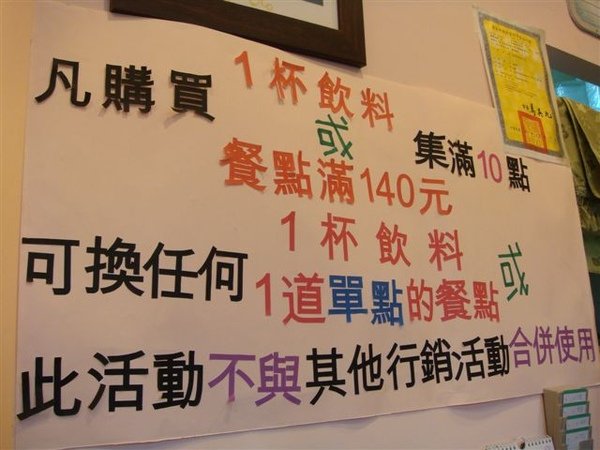 凡購買
1杯飲料
或
餐點滿140元
集滿10點
可換任何
1杯飲料
或
1道單點的餐點
此活動不與其他行銷活動合併使用